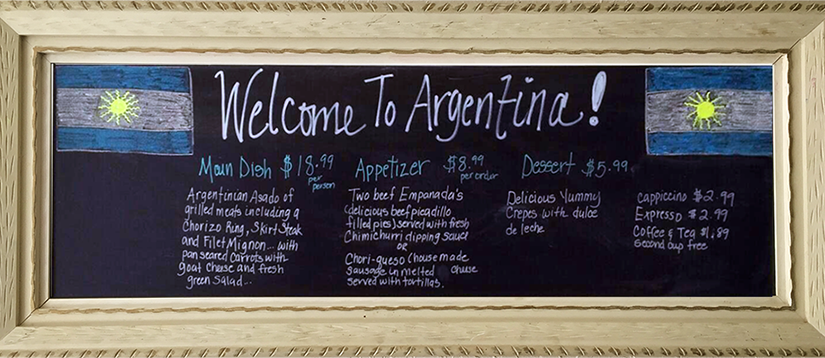 Welcome To Argentina!
Main Dish $18.99
per
person
Argentinian Asado of
grilled meats including a
Chorizo Ring, Skirt Steak
and Filet Mignon... with
pan seared carrots with
goat cheese and fresh
green salad...
Appetizer $8.99
per order
Two beef Empanada's
(delicious beef picadillo
filled pies) served with fresh
Chimichurri dipping sauce
or
Chori-queso (house made
sausage in melted cheese
served with tortillas.
Dessert $5.99
Delicious Yummy
Crepes with dulce
de leche
Cappiccino $2.99
Expresso $2.99
Coffee & Tea $1.89
second cup free